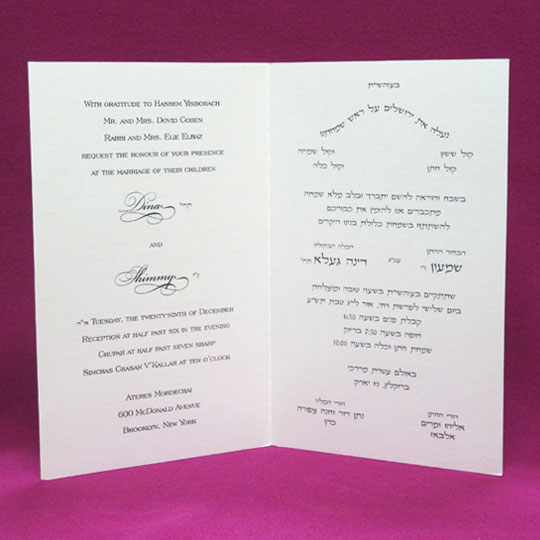 With gratitude to Hashem Yisborach
Mr. and Mrs. Dovid Cohen
Rabbi and Mrs. Elie Elbaz
request the honour of your presence
at the marriage of their children
Dina תחי׳
and
Shimmy ני׳
אי״ה Tuesday, the twenty-ninth of December
Reception at half past six in the evening
Chupah at half past seven sharp
Simchas Chasan V'Kallah at ten o'clock
Ateres Mordechai
600 McDonald Avenue
Brooklyn, New York
בעזהשי״ת
נעלה את ירושלים על ראש שמחתינו
קול ששון וקול שמחה
קול חתן וקול כלה
בשבח והודאה להשם יתברך ובלב מלא שמחה
מתכבדים אנו להזמין את כבודכם
להשתתף בשמחת כלולת בנינו היקרים
הבחור החתן עב״ג הכלה הבתולה
שמעון ני׳ דינה געלא תחי׳
שתתקיים בעזהשי״ת בשעה טובה ומוצלחת
ביום שלישי לפרשת ויחי, אור לי״ג טבת תש״ע
קבלת פנים בשעה 6:30
חופה בשעה 7:30 בדיוק
שמחת חתן וכלה בשעה 10:00
באולם עטרת מרדכי
ברוקלין, ניו יארק
הורי החתן הורי הכלה
אליהו ומרים נתן דוד וחנה צפורה
אלבאז כהן